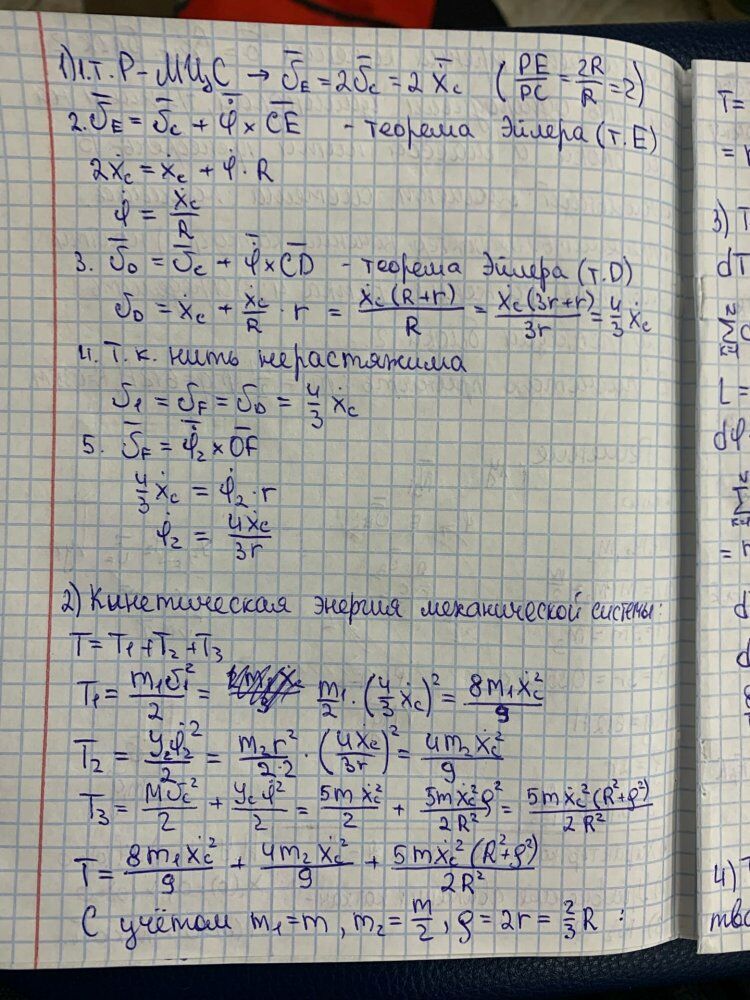 1) 1. т. P - МЦС → v̄_E = 2v̄_C = 2ẋ̄_C (PE/PC = 2R/R = 2)
2. v̄_E = v̄_C + φ̇̄ × C̄Ē - теорема Эйлера (т. E)
2ẋ_C = ẋ_C + φ̇ · R
φ̇ = ẋ_C/R
3. v̄_D = v̄_C + φ̇̄ × C̄D̄ - теорема Эйлера (т. D)
v_D = ẋ_C + ẋ_C/R · r = ẋ_C(R+r)/R = ẋ_C(3r+r)/3r = 4/3 ẋ_C
4. Т.к. нить нерастяжима
v_1 = v_F = v_D = 4/3 ẋ_C
5. v̄_F = φ̇̄_2 × ŌF̄
4/3 ẋ_C = φ̇_2 · r
φ̇_2 = 4ẋ_C/3r
2) Кинетическая энергия механической системы:
T = T_1 + T_2 + T_3
T_1 = m_1v_1²/2 = m_1/2 · (4/3 ẋ_C)² = 8m_1ẋ_C²/9
T_2 = J_2φ̇_2²/2 = m_2r²/2·2 · (4ẋ_C/3r)² = 4m_2ẋ_C²/9
T_3 = Mv_C²/2 + J_Cφ̇²/2 = 5mẋ_C²/2 + 5mẋ_C²ρ²/2R² = 5mẋ_C²(R²+ρ²)/2R²
T = 8m_1ẋ_C²/9 + 4m_2ẋ_C²/9 + 5mẋ_C²(R²+ρ²)/2R²
С учётом m_1 = m, m_2 = m/2, ρ = 2r = 2/3 R :
T=
3) T
4) T